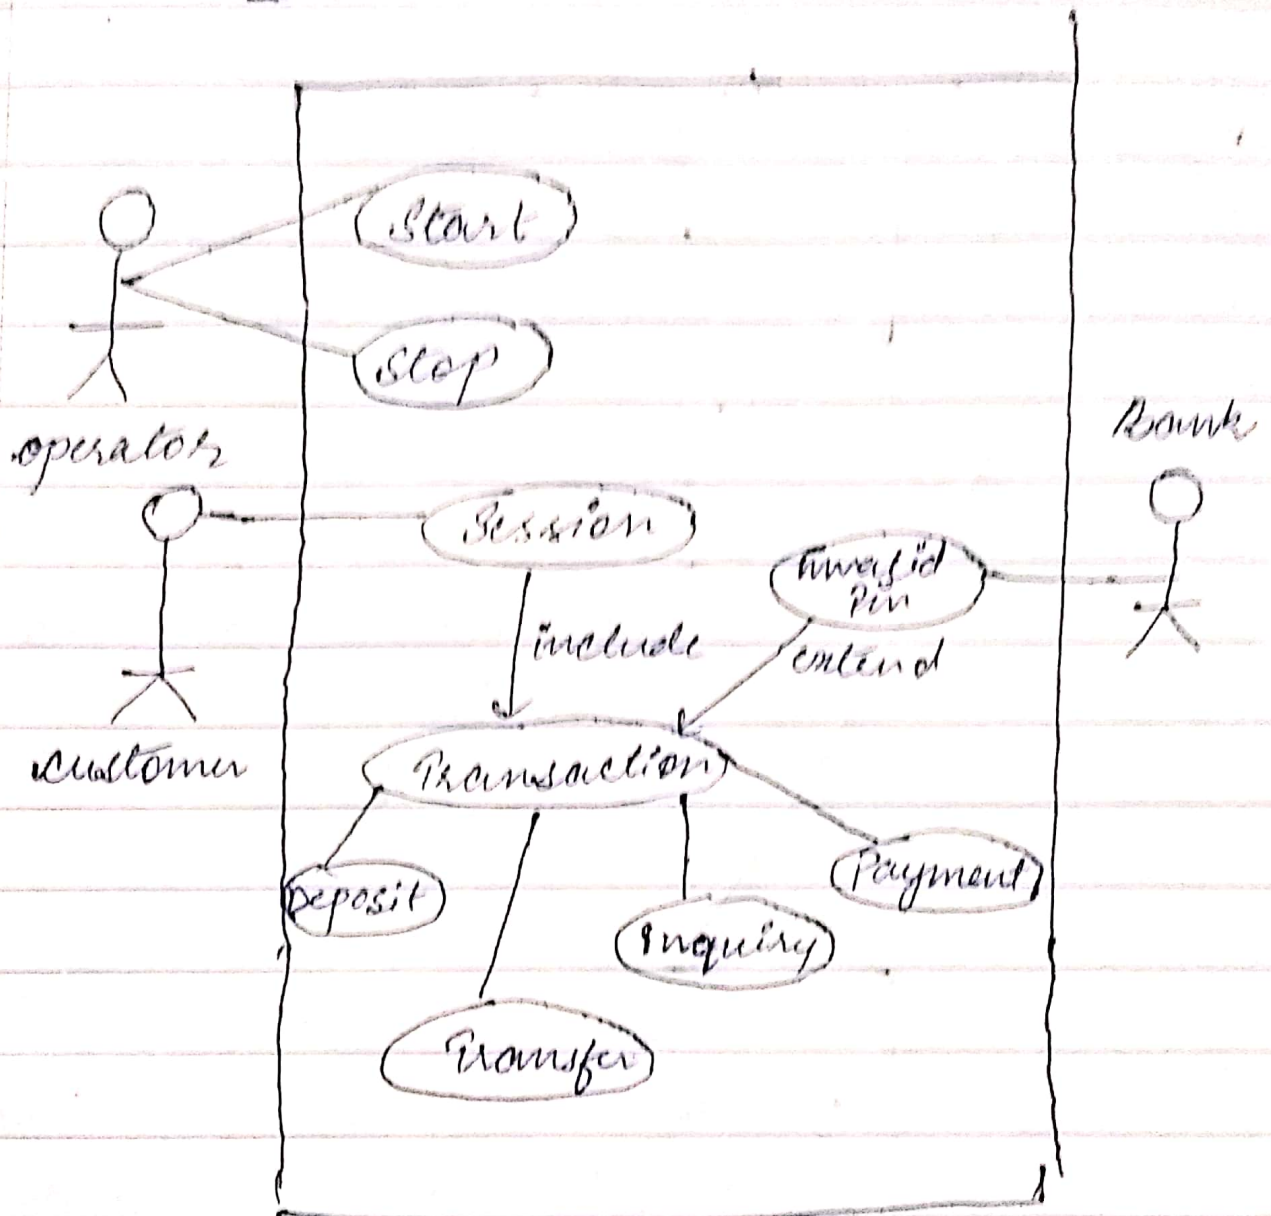 Start
Stop
operator
Bank
Session
Invalid
Pin
include
extend
customer
Transaction
Deposit
Payment
Inquiry
Transfer